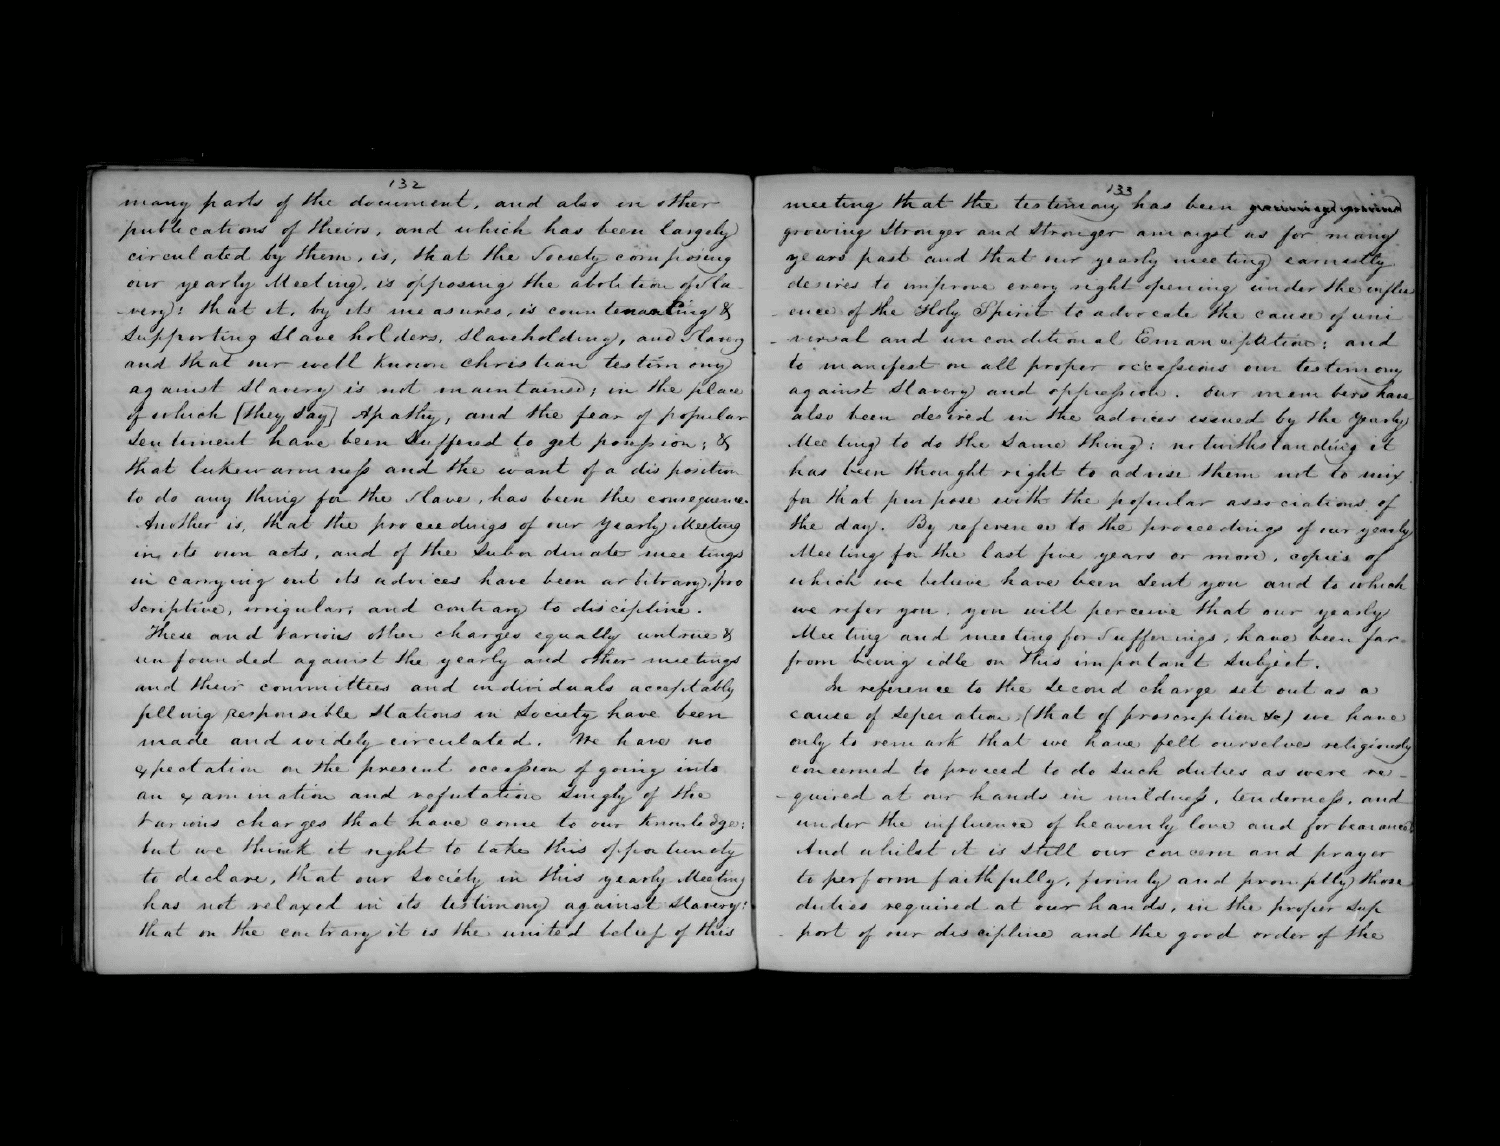 132
many parts of the document, and also in other
publications of theirs, and which has been largely
circulated by them, is, that the Society composing
our yearly Meeting, is opposing the abolition of Sla-
-very: that it, by its measures, is countenancing &
supporting Slave holders, slaveholding, and Slavery
and that our well known christian testimony
against Slavery is not maintained; in the place
of which [they say] Apathy, and the fear of popular
Sentiment have been Suffered to get possession; &
that lukewarmness and the want of a disposition
to do any thing for the Slave, has been the consequence.
Another is, that the proceedings of our Yearly Meeting
in its own acts, and of the Subordinate meetings
in carrying out its advices have been arbitrary, pro
scriptive, irrigular, and contrary to discipline.
These and various other charges equally untrue &
unfounded against the yearly and other meetings
and their committees and individuals acceptably
filling responsible Stations in Society have been
made and widely circulated. We have no
expectation on the present occassion of going into
an examination and refutation Singly of the
various charges that have come to our knowledge:
but we think it right to take this oppotunity
to declare, that our Society in this yearly Meeting
has not relaxed in its testimony against Slavery:
that on the contrary it is the united belief of this
133
meeting that the testimony has been
growing Stronger and Stronger amongst us for many
years past and that our yearly meeting earnestly
desires to improve every right opening under the influ
ence of the Holy Spirit to advocate the cause of uni
-versal and unconditional Emancipation: and
to manifest on all proper occassions our testimony
against Slavery and oppression. Our members have
also been desired in the advices issued by the Yearly
Meeting to do the Same thing: notwithstanding it
has been thought right to advise them not to mix
for that purpose with the popular associations of
the day. By reference to the proceedings of our yearly
Meeting for the last five years or more, copies of
which we believe have been Sent you and to which
we refer you, you will perceive that our yearly
Meeting and meeting for Sufferings, have been far
from being idle on this important Subject.
In reference to the Second charge set out as a
cause of Seperation, (that of proscription &c) we have
only to remark that we have felt ourselves religiously
concerned to proceed to do Such duties as were re-
-quired at our hands in mildness, tenderness, and
under the influence of heavenly love and forbearance
And whilst it is Still our concern and prayer
to perform faithfully, firmly and promptly those
duties required at our hands, in the proper Sup
-port of our discipline and the good order of the